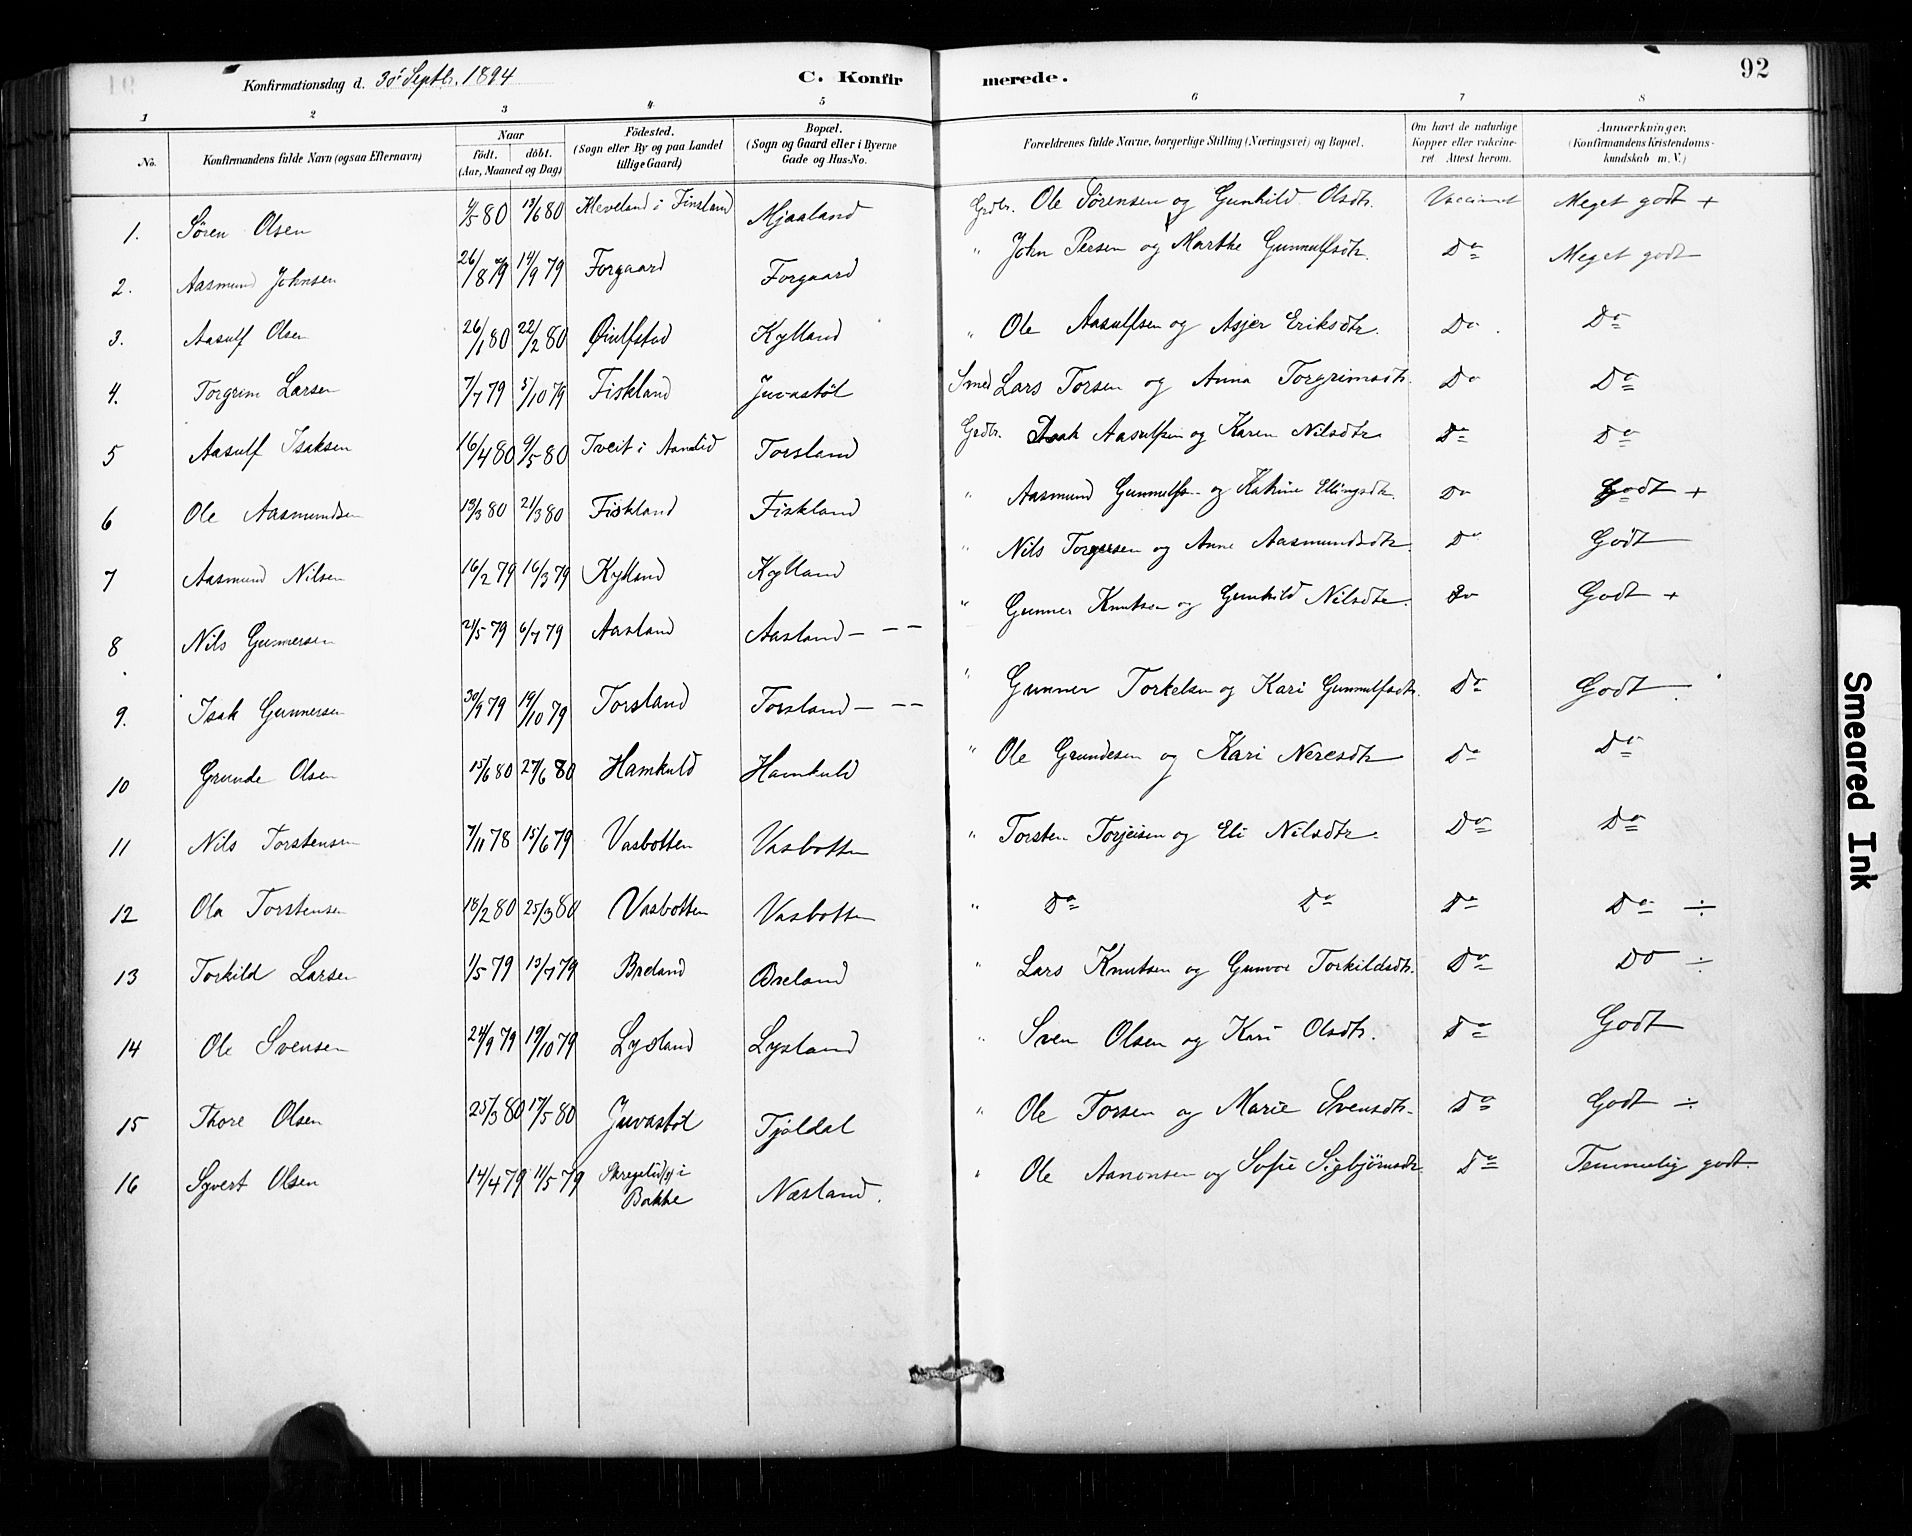 Konfirmationsdag d. 30' Septbr. 1894 C. Konfirmerede. 92
1 2 3 4 5 6 7 8
No. Konfirmandens fulde Navn (ogsaa Efternavn) Naar födt. döbt. (Aar, Maaned og Dag) Födested. (Sogn eller By og paa Landet tillige Gaard) Bopæl. (Sogn og Gaard eller i Byerne Gade og Hus-No. Forældrenes fulde Navne, borgerlige Stilling (Næringsvei) og Bopæl. Om havt de naturlige Kopper eller vakcineret. Attest herom. Anmærkninger. (Konfirmandens Kristendomskundskab m. V.)
1. Sören Olsen 4/5 80 13/6 80 Kleveland i Finsland Mjaaland Grdbr. Ole Sörensen og Gunhild Olsdtr. Vaccineret Meget godt +
2. Aasmund Johnsen 26/8 79 14/9 79 Forgaard Forgaard " John Persen og Marthe Gunnulfsdtr. Do Meget godt
3. Aasulf Olsen 26/1 80 22/2 80 Øiulfstad Kylland " Ole Aasulfsen og Asjer Eriksdtr. Do Do
4. Torgrim Larsen 7/7 79 5/10 79 Fiskland Juvastöl Smed Lars Torsen og Anna Torgrimsdtr. Do Do
5 Aasulf Isaksen 16/4 80 9/5 80 Tveit i Aaserald Torsland Grdbr. Isak Aasulfsen og Karen Nilsdtr Do Do
6 Ole Aasmundsen 13/3 80 21/3 80 Fiskland Fiskland " Aasmund Gunnulfsn og Katrine Ellingsdtr. Do Godt +
7 Aasmund Nilsen 16/2 79 16/3 79 Kylland Kylland " Nils Torgersen og Anne Aasmundsdtr. Do Godt
8 Nils Gunnersen 21/5 79 6/7 79 Aasland Aasland - - - " Gunner Knutsen og Gunhild Nilsdtr. Do Godt +
9. Isak Gunnersen 30/9 79 19/10 79 Torsland Torsland - - - " Gunner Torkelsen og Kari Gunnulfsdtr. Do Godt
10 Grunde Olsen 15/6 80 27/6 80 Hamkuld Hamkuld " Ole Grundesen og Kari Neresdtr Do Do
11 Nils Torstensen 7/11 78 15/6 79 Vasbotten Vasbotten " Torsten Torjeisen og Eli Nilsdtr. Do Do
12 Ola Torstensen 18/2 80 25/3 80 Vasbotten Vasbotten " Do Do Do Do ÷
13 Torkild Larsen 1/5 79 13/7 79 Breland Breland " Lars Knutsen og Gunvor Torkildsdtr. Do Do ÷
14 Ole Svensen 24/9 79 19/10 79 Lysland Lysland " Sven Olsen og Kari Olsdtr. Do Godt
15 Thore Olsen 25/3 80 17/5 80 Juvastöl Tjöldal " Ole Torsen og Marie Svensdtr. Do Godt ÷
16 Syvert Olsen 14/4 79 11/5 79 i Bakke Næsland. " Ole Aanonsen og Sofie Sigbjörnsdtr Do Temmelig godt.
Smeared Ink